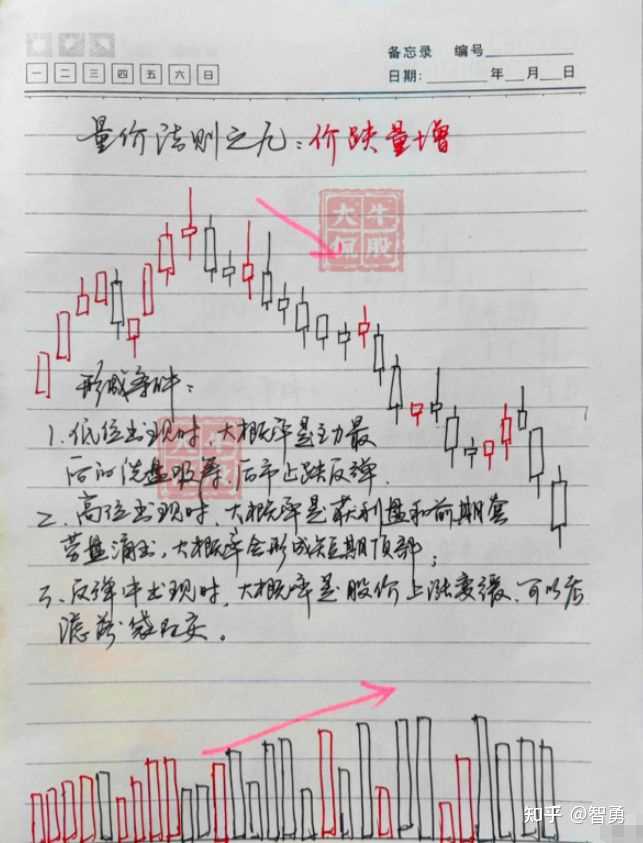 备忘录 编号
一 二 三 四 五 六 日
日期: 年 月 日
量价法则之九：价跌量增
大牛
侃股
形成条件：
1.低位出现时，大概率是主力最
后的洗盘吸筹，后市止跌反弹.
2、高位出现时，大概率是获利盘和前期套
劳盘涌出，大概率会形成短期顶部；
3、反弹中出现时，大概率是股价上涨变缓，可以考
虑落袋为安。
知乎 @智勇